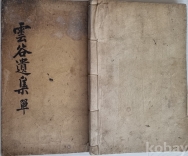 雲谷遺集 單
kobay